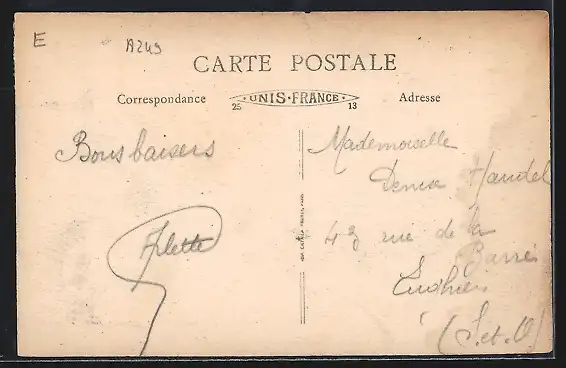 E
A249
CARTE POSTALE
Correspondance
UNIS-FRANCE
25
13
Adresse
Bons baisers
Arlette
Mademoiselle
Denise Handel
43 rue de la
Barre
Enghien
(S.et.O)